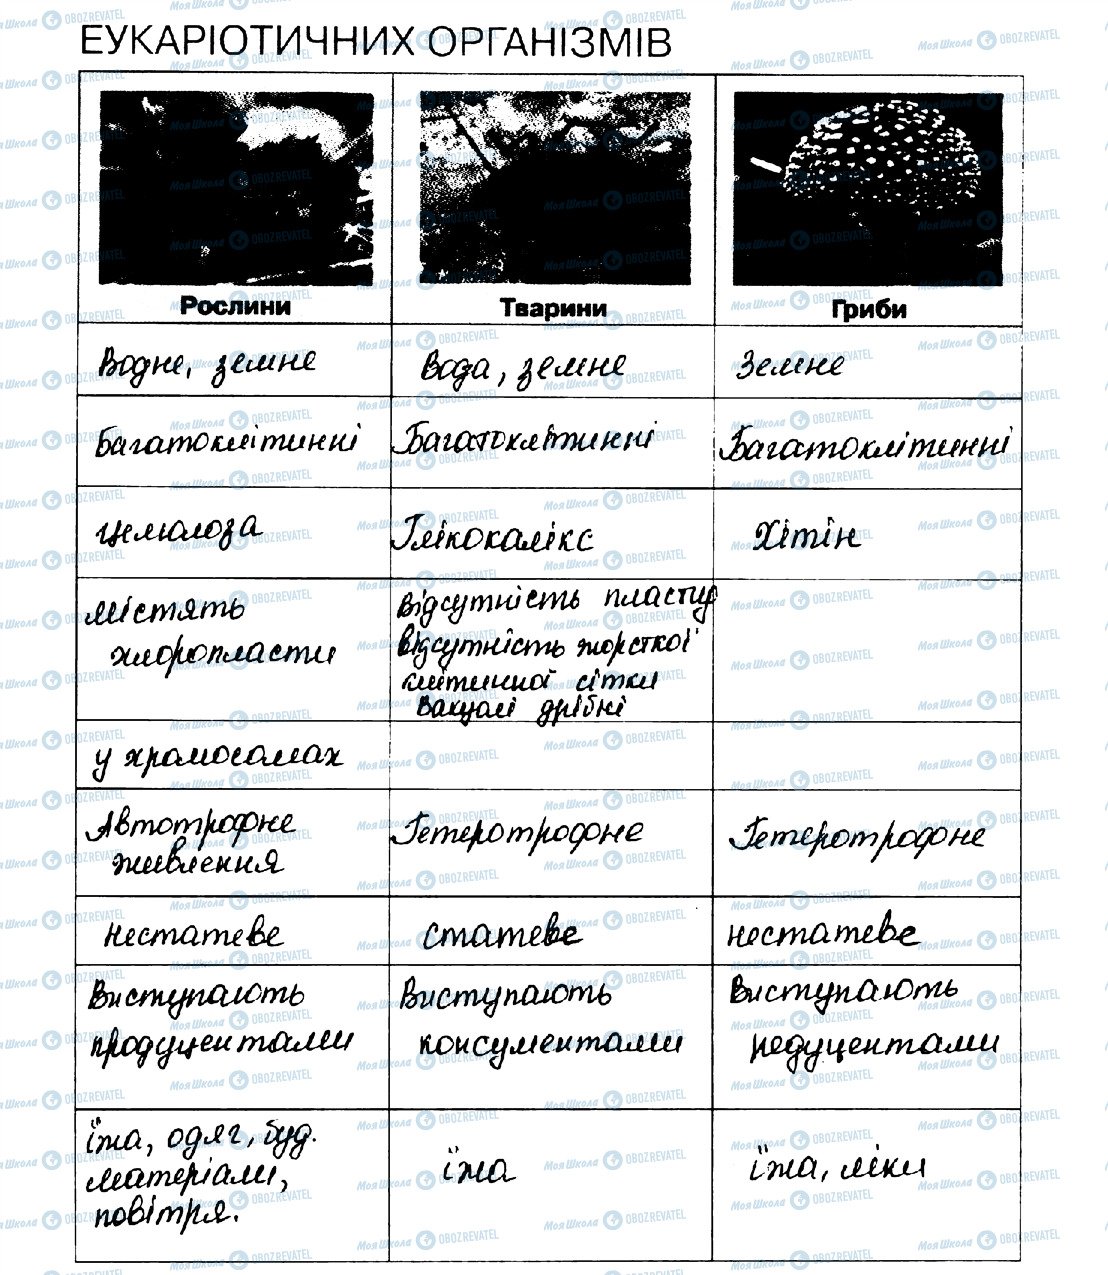 ЕУКАРІОТИЧНИХ ОРГАНІЗМІВ
Рослини
Тварини
Гриби
Водне, земне
Вода, земне
Земне
Багатоклітинні
Багатоклітинні
Багатоклітинні
Целюлоза
Глікокалікс
Хітін
Містять
хлоропласти
Відсутність пластид
відсутність жорсткої
клітинної сітки
Вакуолі дрібні
у хромосомах
Автотрофне
живлення
Гетеротрофне
Гетеротрофне
нестатеве
статеве
нестатеве
Виступають
продуцентами
Виступають
консументами
Виступають
редуцентами
їжа, одяг, буд.
матеріали,
повітря.
їжа
їжа, ліки
Моя Школа OBOZREVATEL